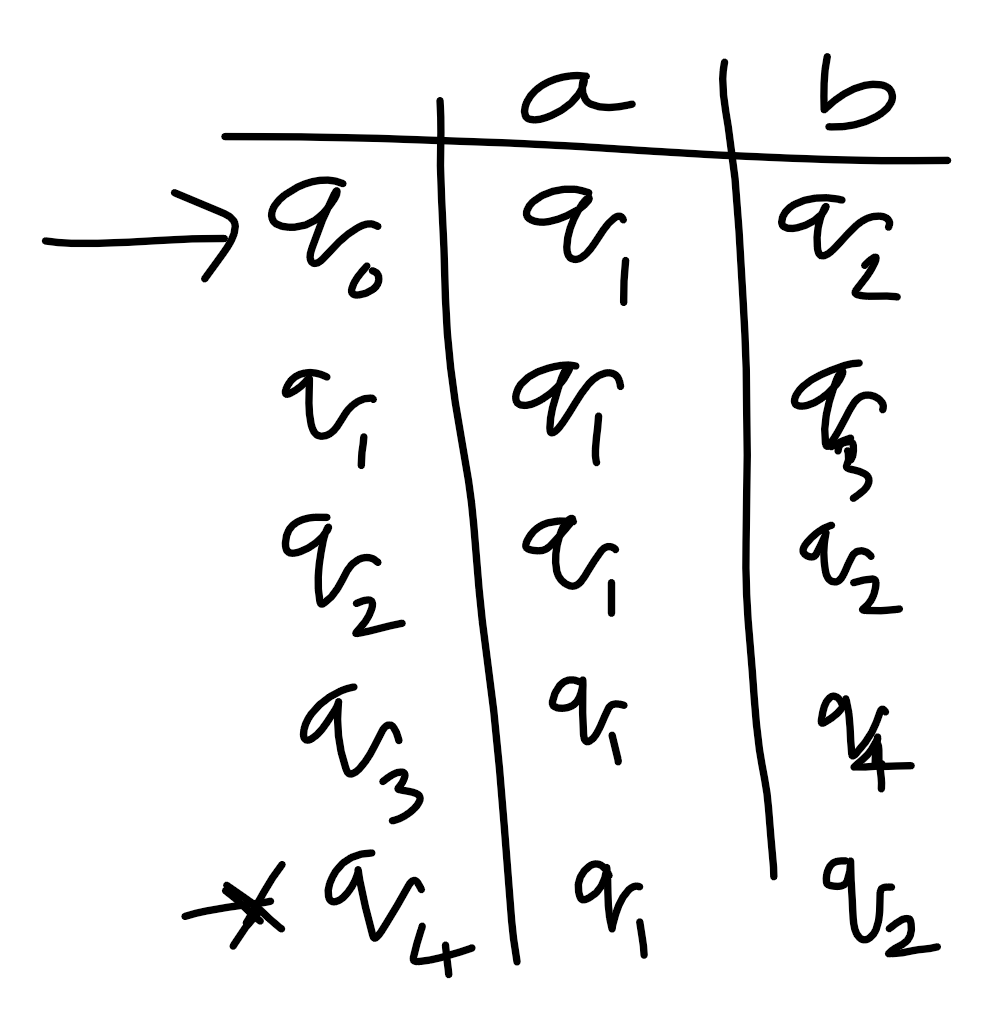 a b
→ q₀ q₁ q₂
q₁ q₁ q₃
q₂ q₁ q₂
q₃ q₁ q₄
* q₄ q₁ q₂